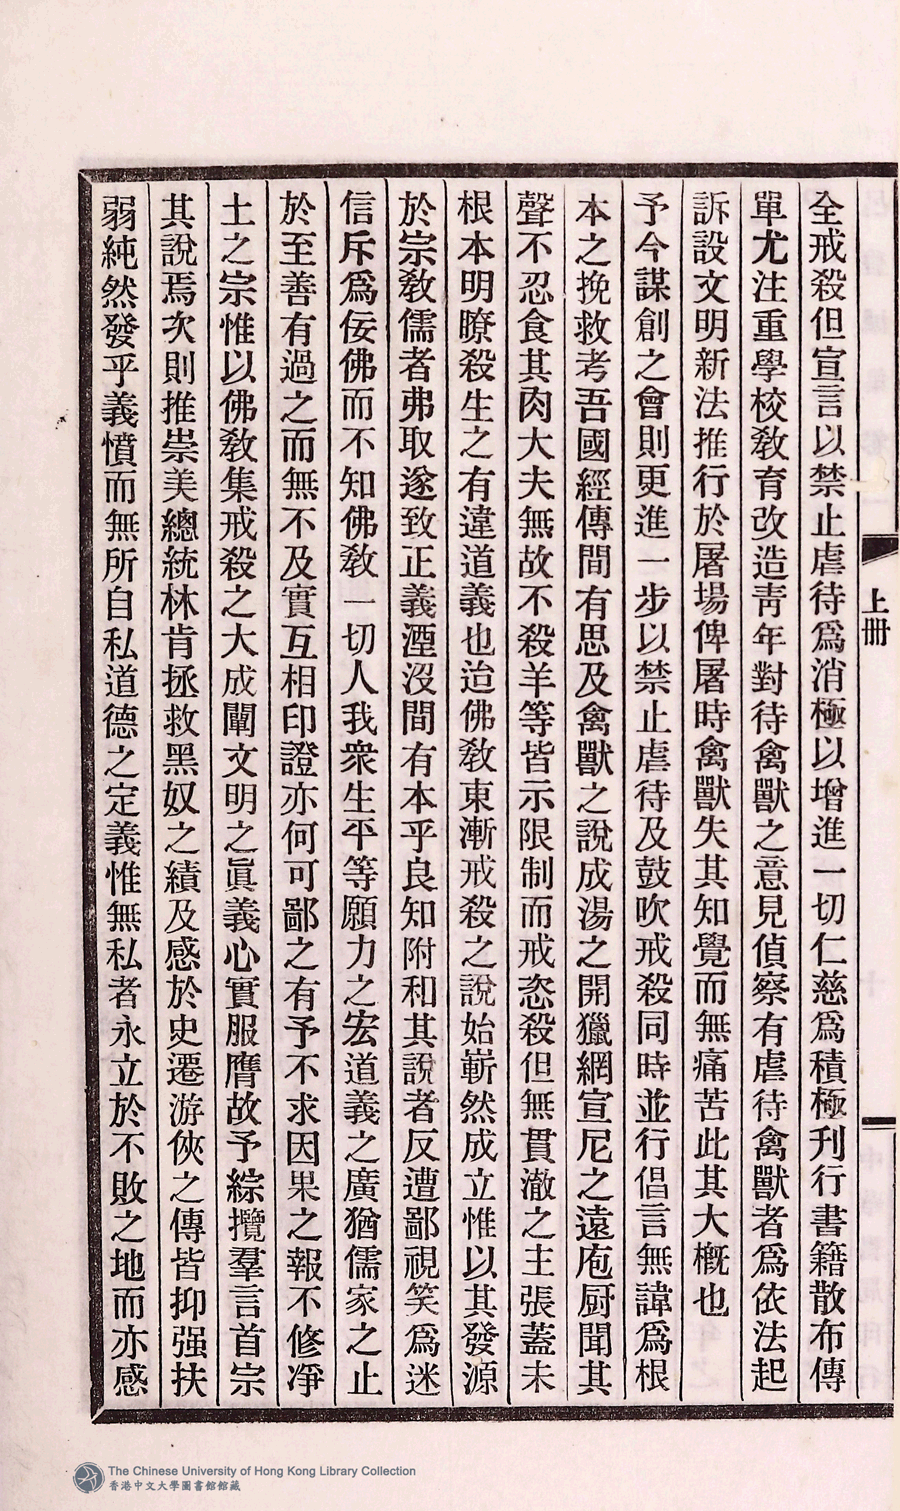 上冊
全戒殺但宣言以禁止虐待爲消極以增進一切仁慈爲積極刊行書籍散布傳
單尤注重學校敎育改造靑年對待禽獸之意見偵察有虐待禽獸者爲依法起
訴設文明新法推行於屠場俾屠時禽獸失其知覺而無痛苦此其大槪也
予今謀創之會則更進一步以禁止虐待及鼓吹戒殺同時並行倡言無諱爲根
本之挽救考吾國經傳間有思及禽獸之說成湯之開獵網宣尼之遠庖厨聞其
聲不忍食其肉大夫無故不殺羊等皆示限制而戒恣殺但無貫澈之主張蓋未
根本明瞭殺生之有違道義也迨佛敎東漸戒殺之說始嶄然成立惟以其發源
於宗敎儒者弗取遂致正義湮沒間有本乎良知附和其說者反遭鄙視笑爲迷
信斥爲佞佛而不知佛敎一切人我衆生平等願力之宏道義之廣猶儒家之止
於至善有過之而無不及實互相印證亦何可鄙之有予不求因果之報不修凈
土之宗惟以佛敎集戒殺之大成闡文明之眞義心實服膺故予綜攬羣言首宗
其說焉次則推崇美總統林肯拯救黑奴之績及感於史遷游俠之傳皆抑强扶
弱純然發乎義憤而無所自私道德之定義惟無私者永立於不敗之地而亦感
The Chinese University of Hong Kong Library Collection
香港中文大學圖書館館藏